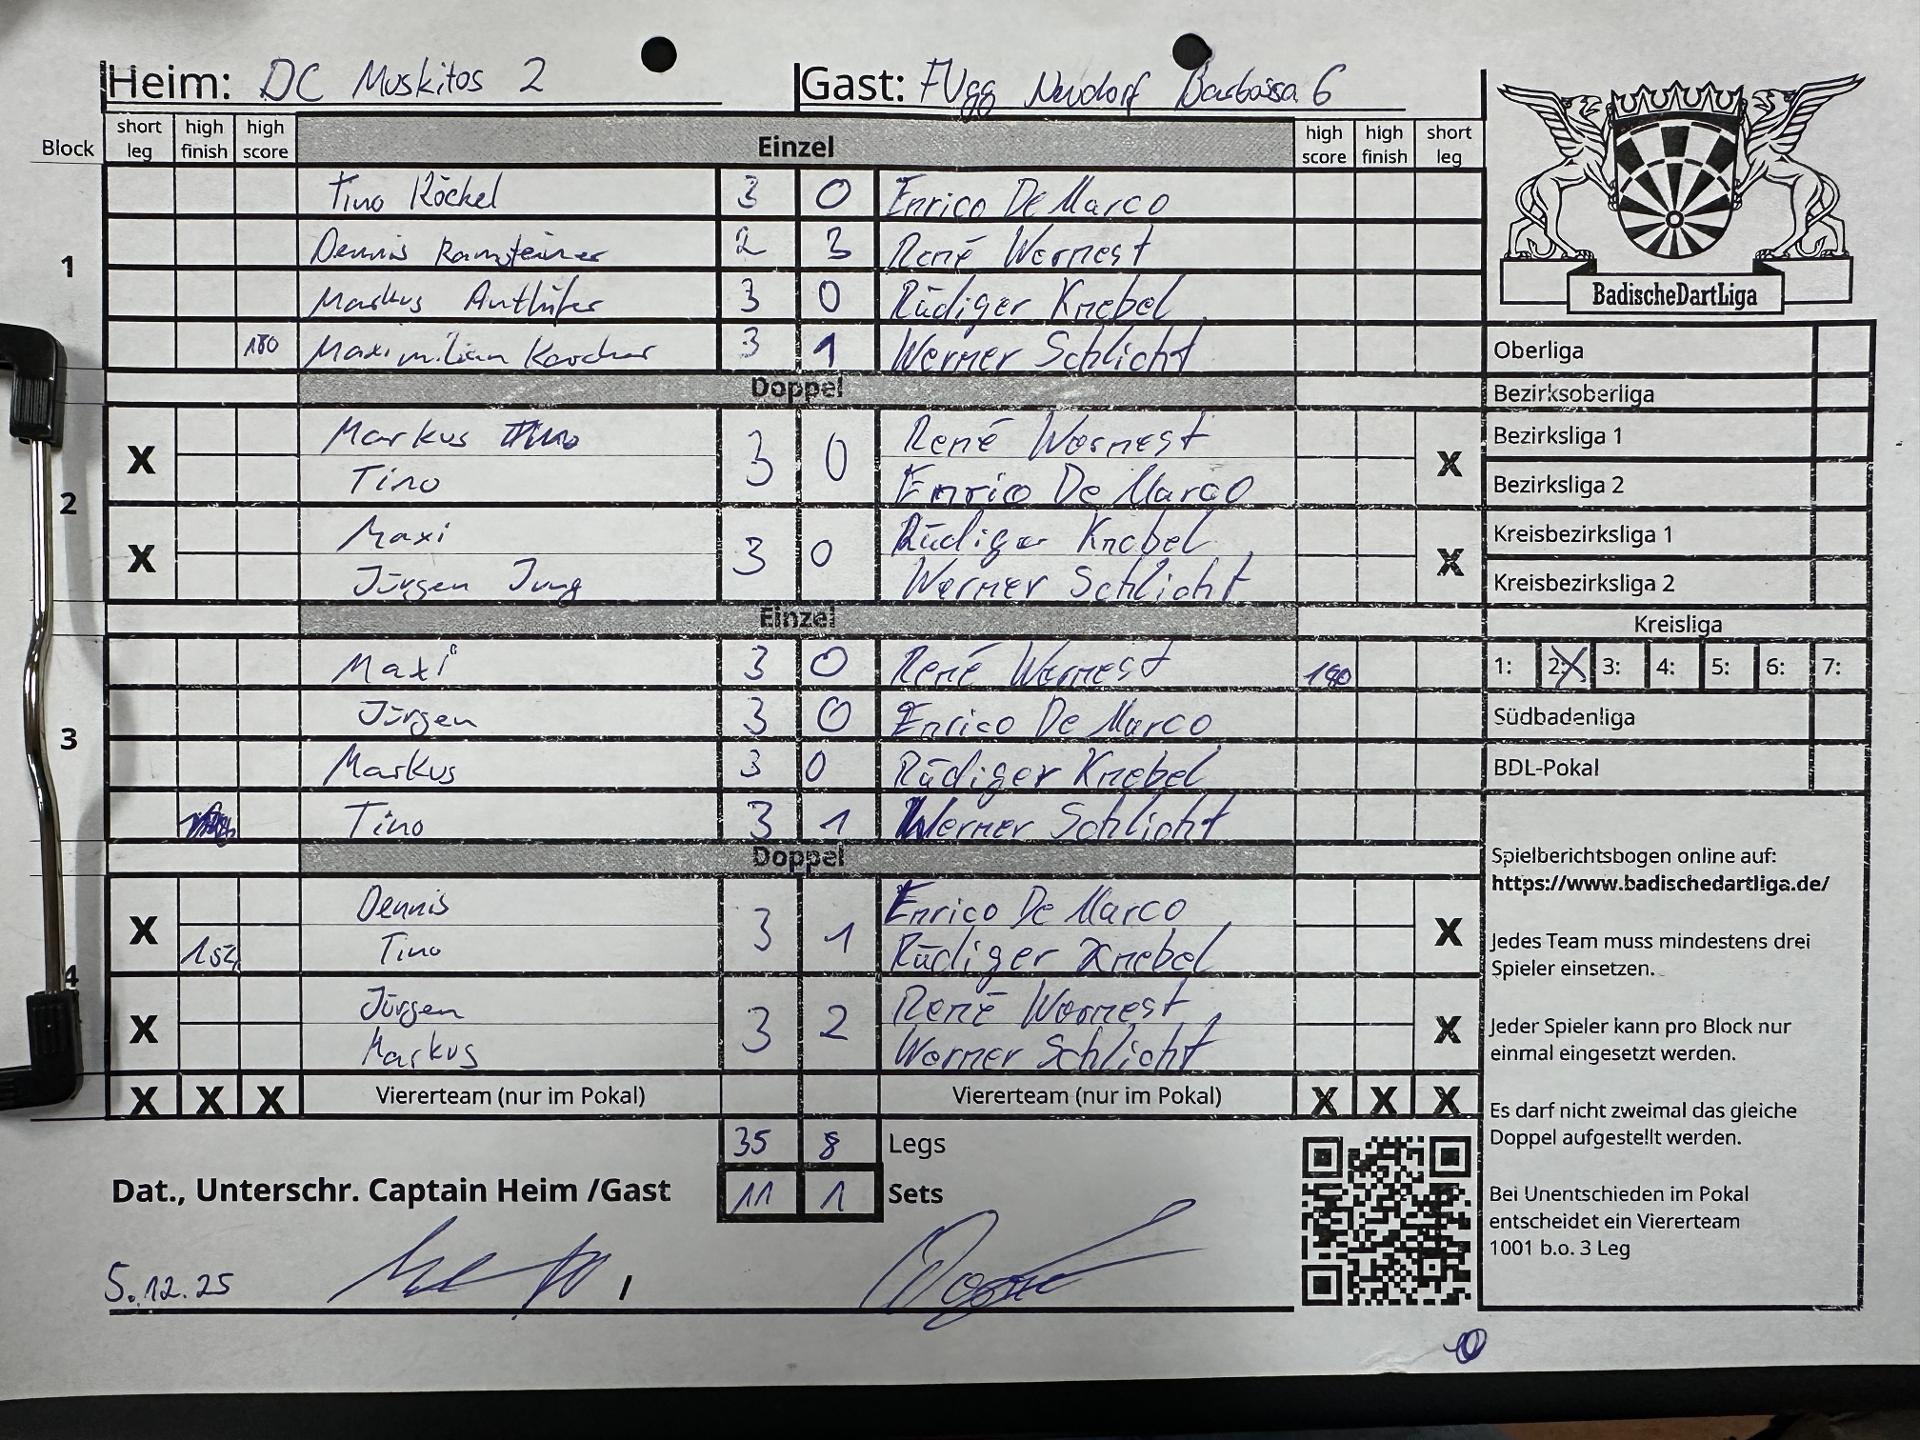 Heim: DC Muskitos 2 Gast: FUgg Neudorf Barbossa 6
Block short leg high finish high score Einzel high score high finish short leg
BadischeDartLiga
1
Tino Köckel 3 0 Enrico De Marco
Dennis Ramsteiner 2 3 René Wornest
Markus Anthöfer 3 0 Rüdiger Knebel
180 Maximilian Karcher 3 1 Werner Schlicht
Doppel
2
X Markus 3 0 René Wornest X
Tino Enrico De Marco
X Maxi 3 0 Rüdiger Knebel X
Jürgen Jung Werner Schlicht
Einzel
3
Maxi 3 0 René Wornest 180
Jürgen 3 0 Enrico De Marco
Markus 3 0 Rüdiger Knebel
Tino 3 1 Werner Schlicht
Doppel
4
X Dennis 3 1 Enrico De Marco X
154 Tino Rüdiger Knebel
X Jürgen 3 2 René Wornest X
Markus Werner Schlicht
X X X Viererteam (nur im Pokal) Viererteam (nur im Pokal) X X X
35 8 Legs
Dat., Unterschr. Captain Heim /Gast 11 1 Sets
5.12.25
Oberliga
Bezirksoberliga
Bezirksliga 1
Bezirksliga 2
Kreisbezirksliga 1
Kreisbezirksliga 2
Kreisliga
1: 2: X 3: 4: 5: 6: 7:
Südbadenliga
BDL-Pokal
Spielberichtsbogen online auf:
https://www.badischedartliga.de/
Jedes Team muss mindestens drei
Spieler einsetzen.
Jeder Spieler kann pro Block nur
einmal eingesetzt werden.
Es darf nicht zweimal das gleiche
Doppel aufgestellt werden.
Bei Unentschieden im Pokal
entscheidet ein Viererteam
1001 b.o. 3 Leg